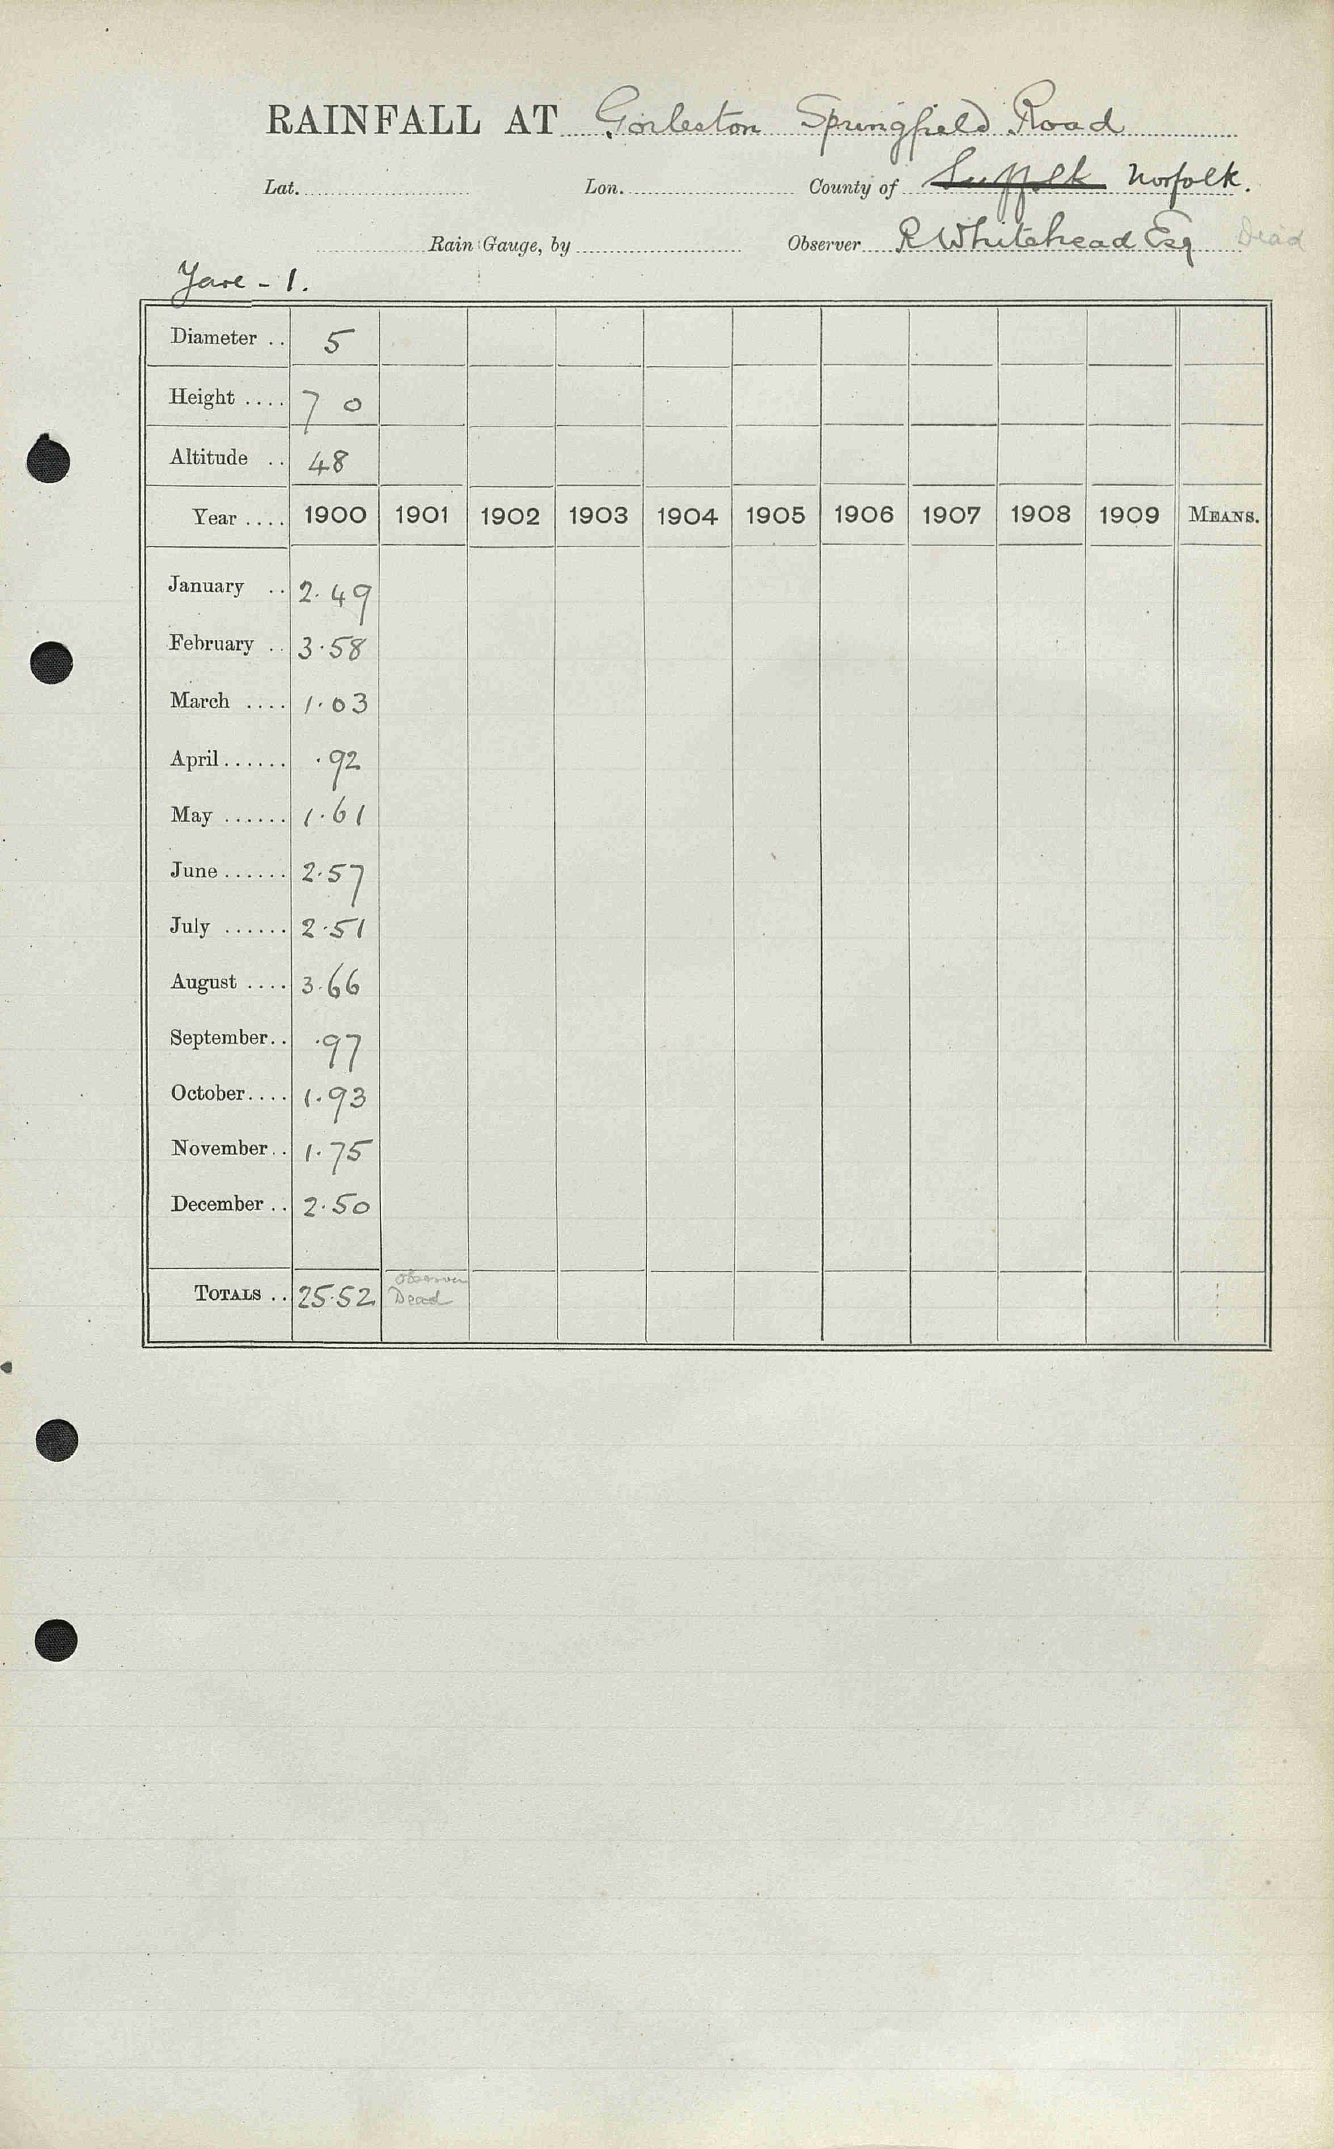 RAINFALL AT Gorleston Springfield Road
Lat. Lon. County of Suffolk Norfolk.
Rain Gauge, by Observer R Whitehead Esq Dead
Yare - 1.
Diameter .. 5
Height .... 7 0
Altitude .. 48
Year .... 1900 1901 1902 1903 1904 1905 1906 1907 1908 1909 MEANS.
January .. 2.49
February .. 3.58
March .... 1.03
April ...... .92
May ...... 1.61
June ...... 2.57
July ...... 2.51
August .... 3.66
September.. .97
October.... 1.93
November.. 1.75
December .. 2.50
TOTALS .. 25.52 Observer
Dead